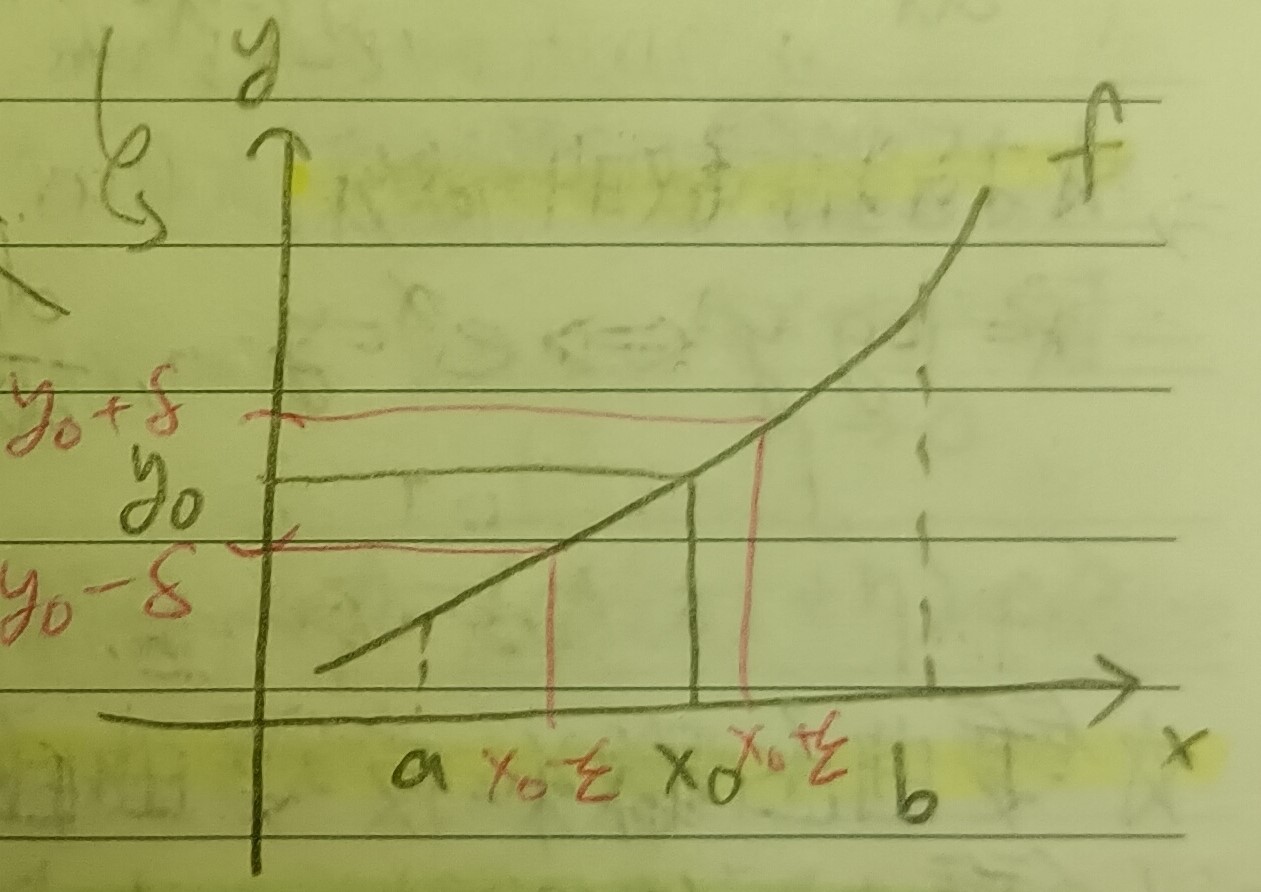 y
f
y₀+δ
y₀
y₀-δ
a x₀-ξ x₀ x₀+ξ b x